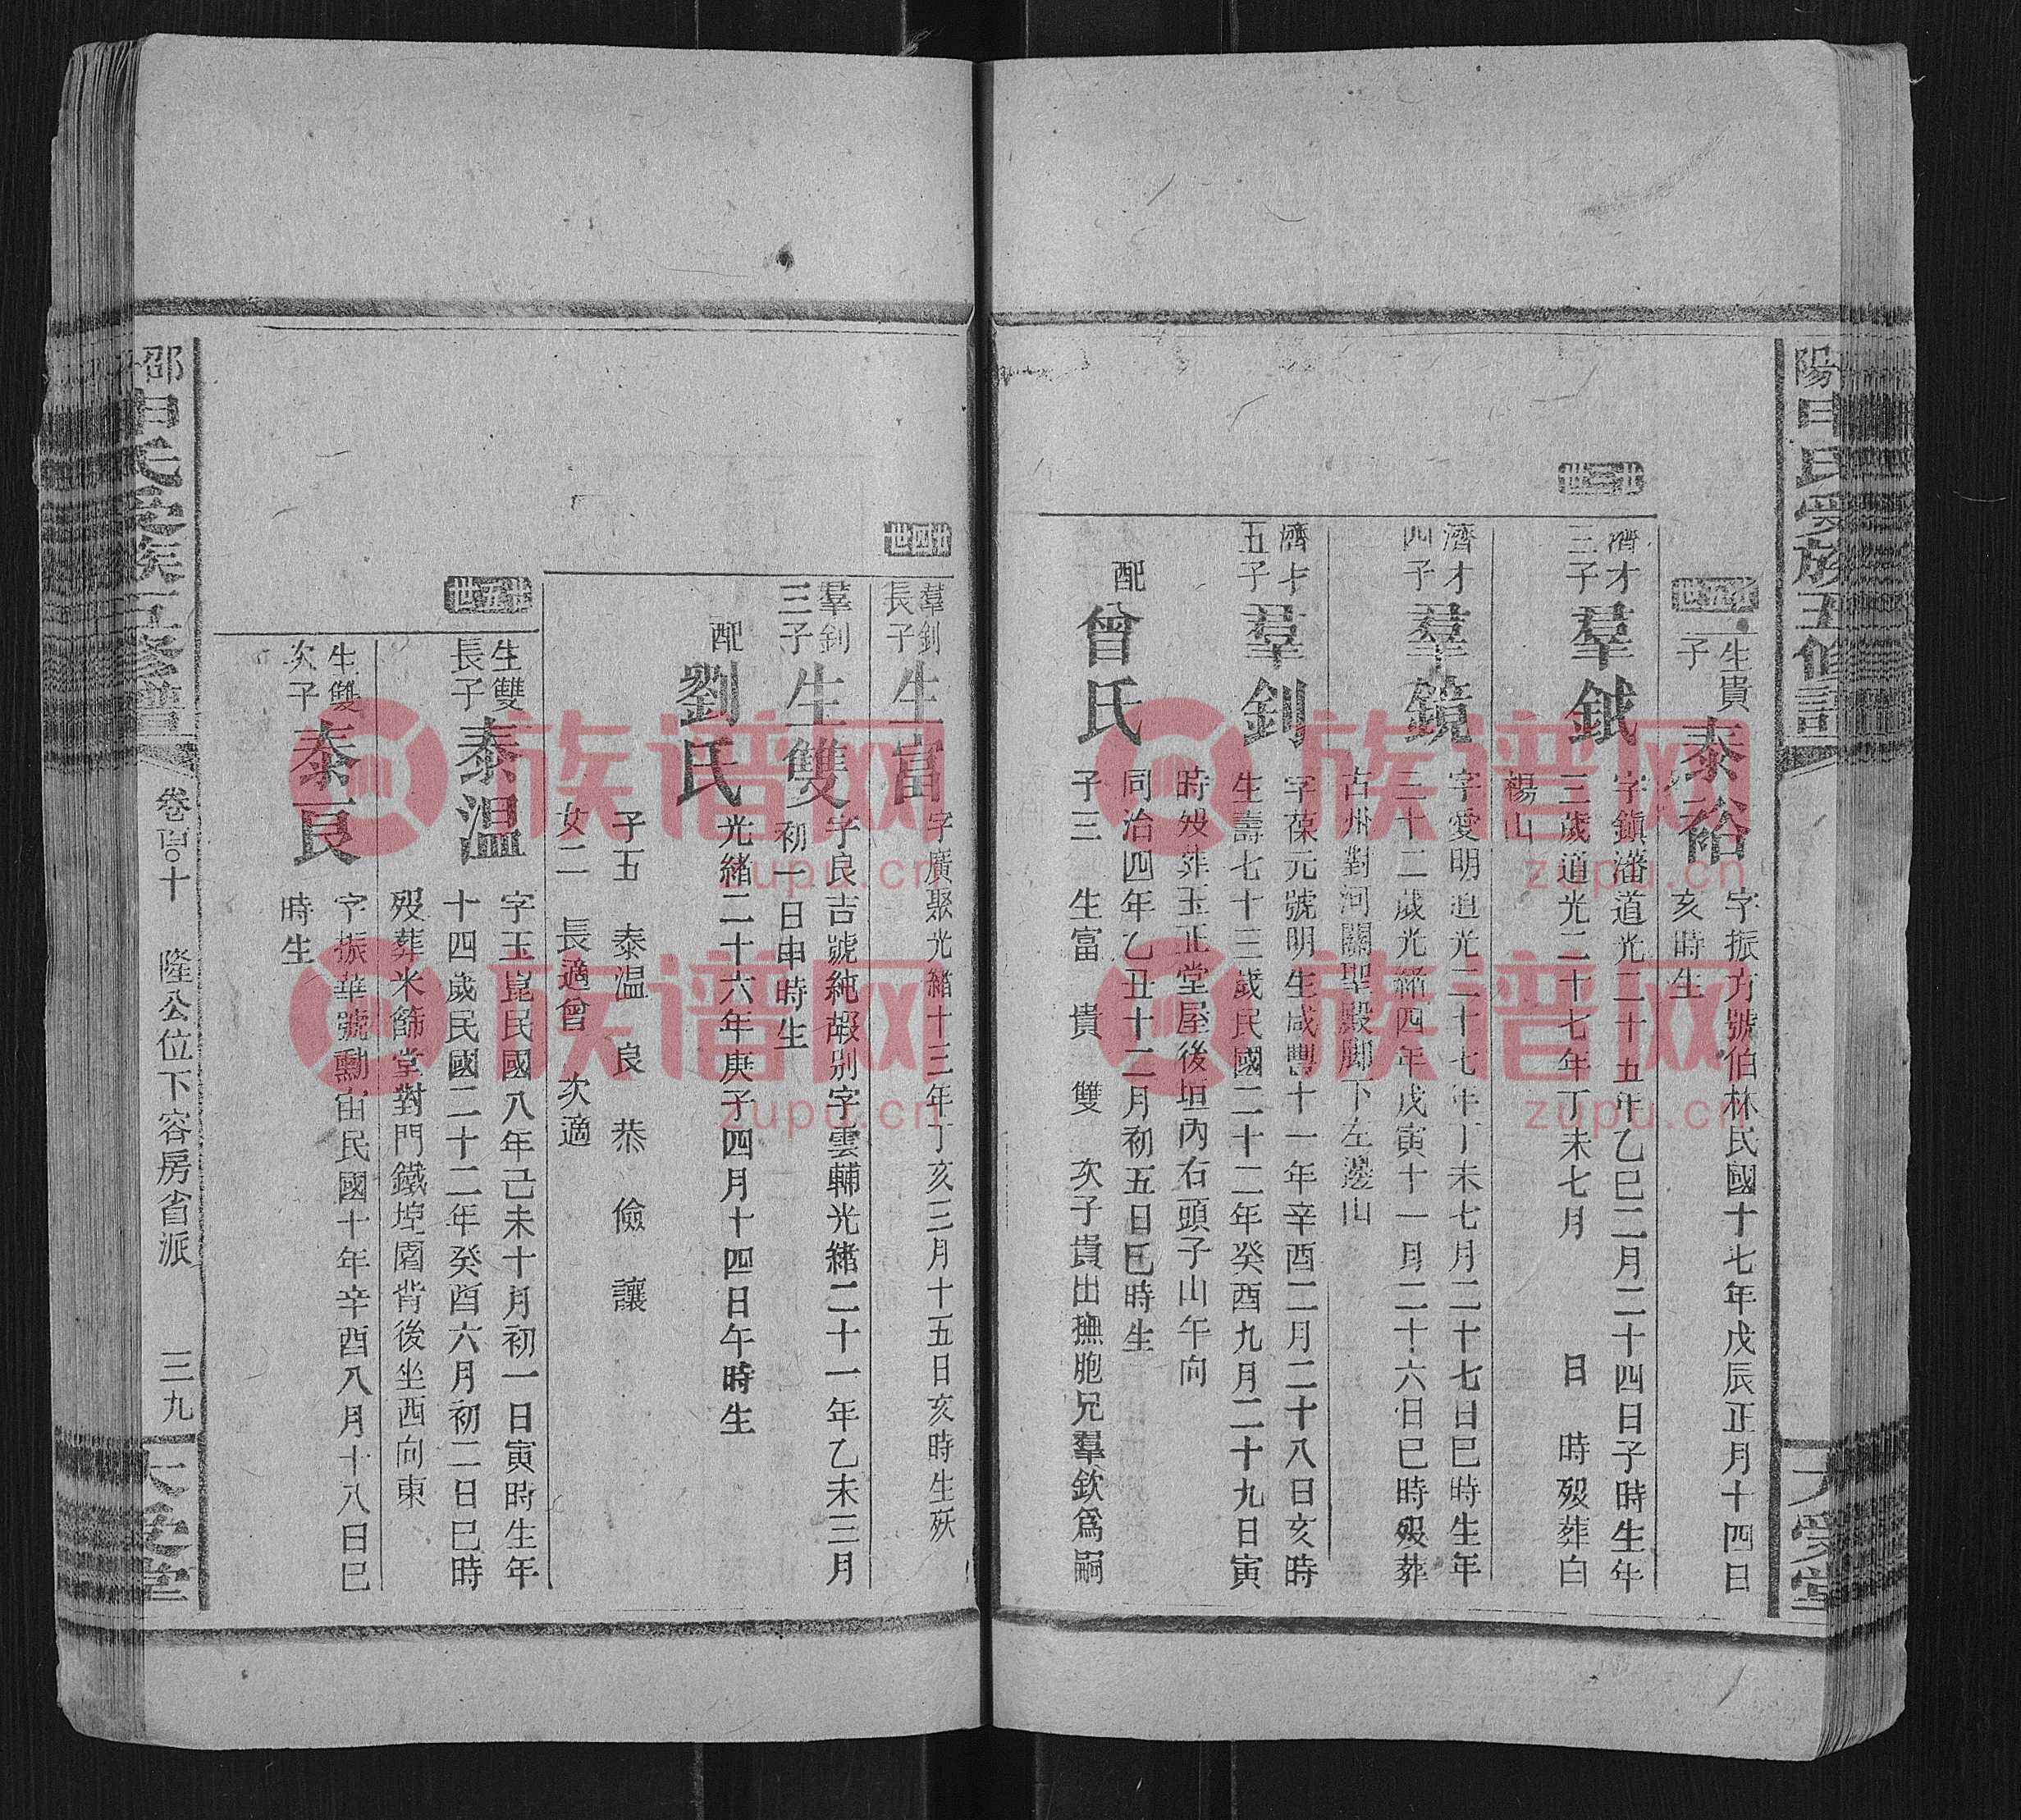 陽申氏受族五修譜
大受堂
廿五世
生貴
子
泰裕
字振方號伯林民國十七年戊辰正月十四日
亥時生
廿三世
濟才
三子
羣鉞
字鎮藩道光二十五年乙巳二月二十四日子時生年
三歲道光二十七年丁未七月 日 時歿葬白
楊山
濟才
四子
羣鏡
字愛明道光二十七年丁未七月二十七日巳時生年
三十二歲光緒四年戊寅十一月二十六日巳時歿葬
古州對河關聖殿脚下左邊山
濟才
五子
羣釗
字葆元號明生咸豐十一年辛酉二月二十八日亥時
生壽七十三歲民國二十二年癸酉九月二十九日寅
時歿葬玉正堂屋後垣內右頭子山午向
配
曾氏
同治四年乙丑十二月初五日巳時生
子三 生富 貴 雙 次子貴出撫胞兄羣欽爲嗣
廿四世
羣釗
長子
生富
字廣聚光緒十三年丁亥三月十五日亥時生殀
羣釗
三子
生雙
字良吉號純嘏別字雲輔光緒二十一年乙未三月
初一日申時生
配
劉氏
光緒二十六年庚子四月十四日午時生
子五 泰温 良 恭 儉 讓
女二 長適曾 次適
廿五世
生雙
長子
泰温
字玉崑民國八年己未十月初一日寅時生年
十四歲民國二十二年癸酉六月初二日巳時
歿葬米篩堂對門鐵埕園背後坐西向東
生雙
次子
泰良
字振華號勳宙民國十年辛酉八月十八日巳
時生
邵申氏受族五修譜
卷百〇十
隆公位下容房省派
三九
大受堂
族谱网
zupu.cn
族谱网
zupu.cn
族谱网
zupu.cn
族谱网
zupu.cn